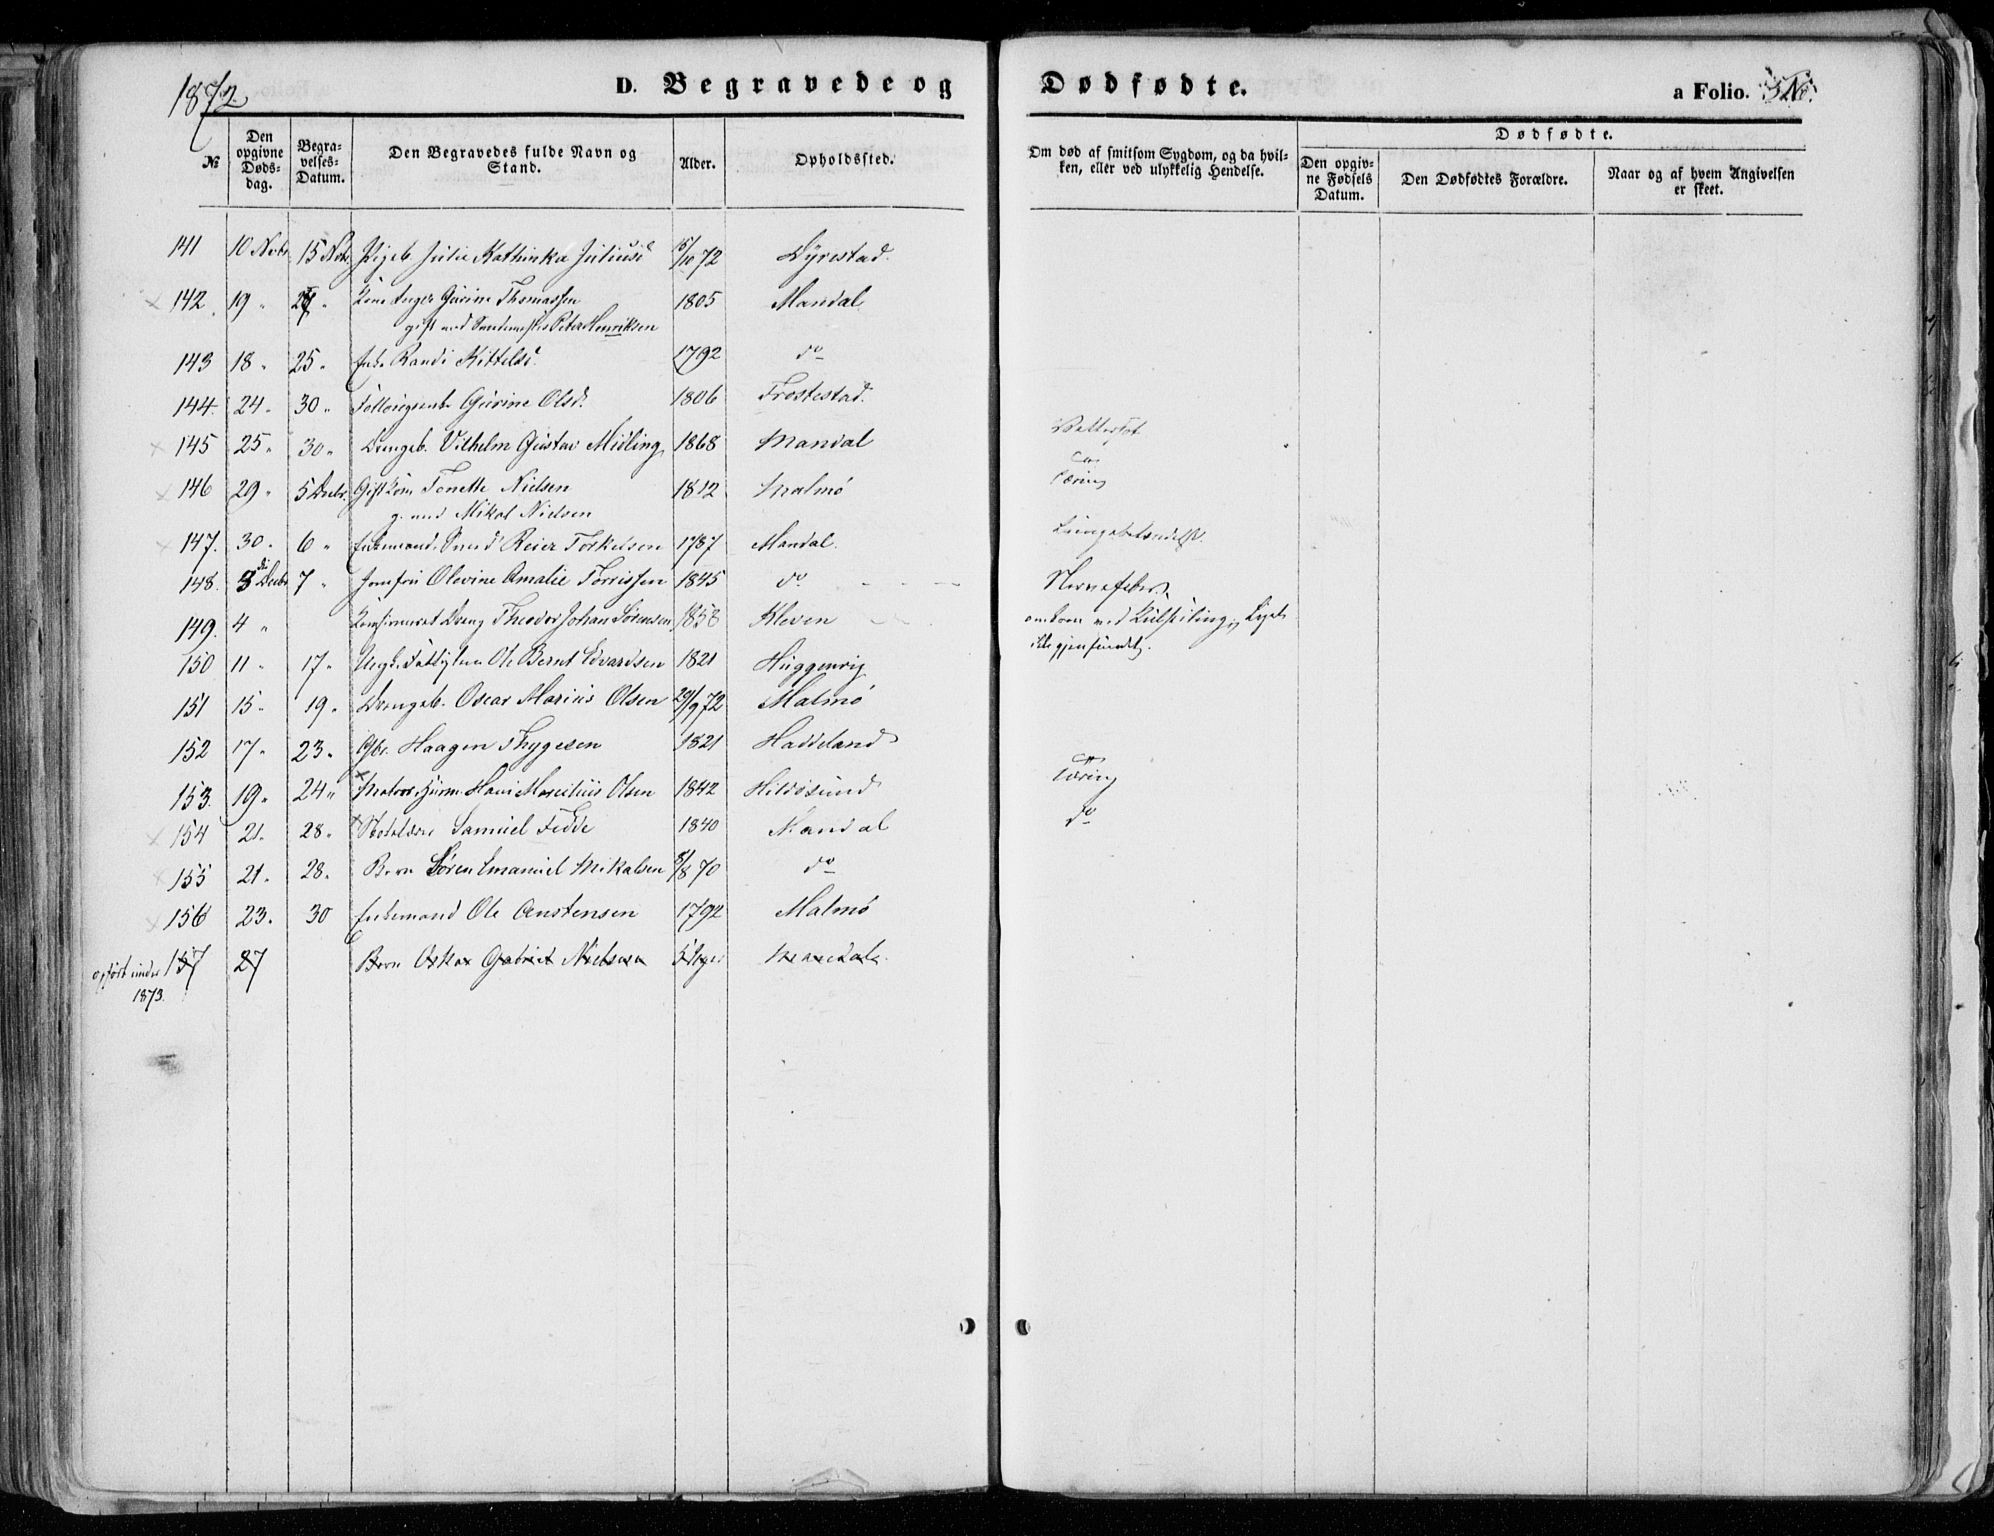 1872.
D. Begravede og Dødfødte.
a Folio.
№
Den opgivne Døds-dag.
Begra-velses-Datum.
Den Begravedes fulde Navn og Stand.
Alder.
Opholdssted.
Om død af smitsom Sygdom, og da hvil-ken, eller ved ulykkelig Hendelse.
Dødfødte.
Den opgiv-ne Fødsels Datum.
Den Dødfødtes Forældre.
Naar og af hvem Angivelsen er skeet.
141 10 Novbr 15 Novbr. Pigeb. Julie Kathinka Juliusd 15/10 72 Dyrestad.
142. 19 " " Kone Inger Gurine Thomassen 1805 Mandal
gift med Peter Henriksen
143 18 " 25 " Enke Randi Kittelsd. 1792 do
144. 24 " 30 " Gurine Olsd. 1806 Frøstestad.
145 25 " 30 " Drengeb. Vilhelm Gustav Midling 1868 Mandal
146 29 " 5 Decbr. Gift Kone Tonette Nielsen 1812 Malmø Tæring
g. med Mikal Nielsen
147. 30 " 6 " Enkemand, Smed Reier Torkelsen 1787 Mandal.
148. 3 Decbr 7 " Jomfru Olevine Amalie Torrissen 1845 do Nervefeber
149. 4 " Konfirmeret Dreng Theodor Johan Sørensen 1858 Kleven omkom ved Kulseiling, Liget
ikke gjenfundet.
150 11 " 17 " Ole Bernt Edvardsen 1821 Huggenvig
151 15 " 19 " Drengeb. Oscar Marius Olsen 29/9 72 Malmø
152 17 " 23 " Gbr. Haagen Thygesen 1821 Haddeland
153. 19 " 24 " Matros, Hans Marelius Olsen 1842 Hildøsund Tæring
154 21 " 28 " Samuel Fedde 1840 Mandal do
155 21 " 28 " Barn Søren Emanuel Mikalsen 8/8 70 do
156 23 " 30 Enkemand Ole Anstensen 1792 Malmø
opført under 157 27 Barn Oskar Gabriel Nielsen 5 Dage Mandal.
1873.